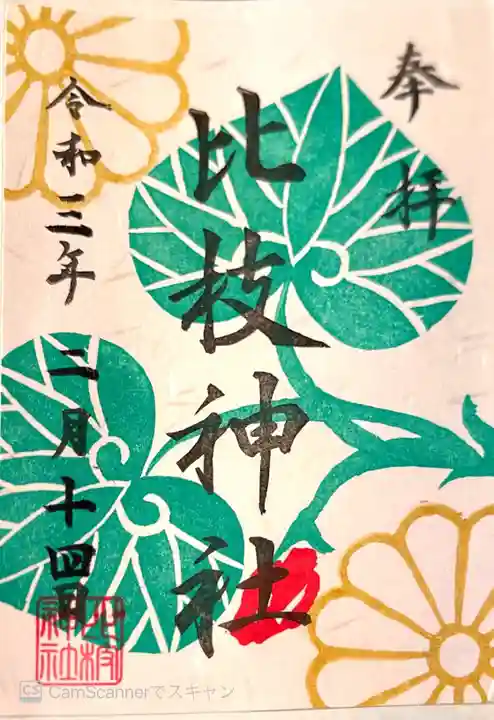 奉拝
比枝神社
令和三年 二月十四日
比枝
神社
CS CamScannerでスキャン